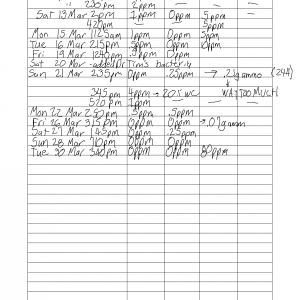 230pm 2ppm
Sat 13 Mar 2pm 1ppm 0ppm 5ppm
420pm .5ppm 5ppm
Mon 15 Mar 1125am 1ppm 0ppm 5ppm
Tue 16 Mar 215pm 5ppm 0ppm 10ppm
Fri 19 Mar 1240pm .5ppm 0ppm
Sat 20 Mar added Dr Tims bacteria
Sun 21 Mar 235pm 0ppm .25ppm
345pm 4ppm → 20% WC → WAY TOO MUCH
520pm 1ppm
Mon 22 Mar 250pm .5ppm .5ppm
Fri 26 Mar 315pm 0ppm 0ppm
Sat 27 Mar 145pm 0ppm .25ppm
Sun 28 Mar 0ppm 0ppm
Tue 30 Mar 340pm 0ppm 0ppm 80ppm